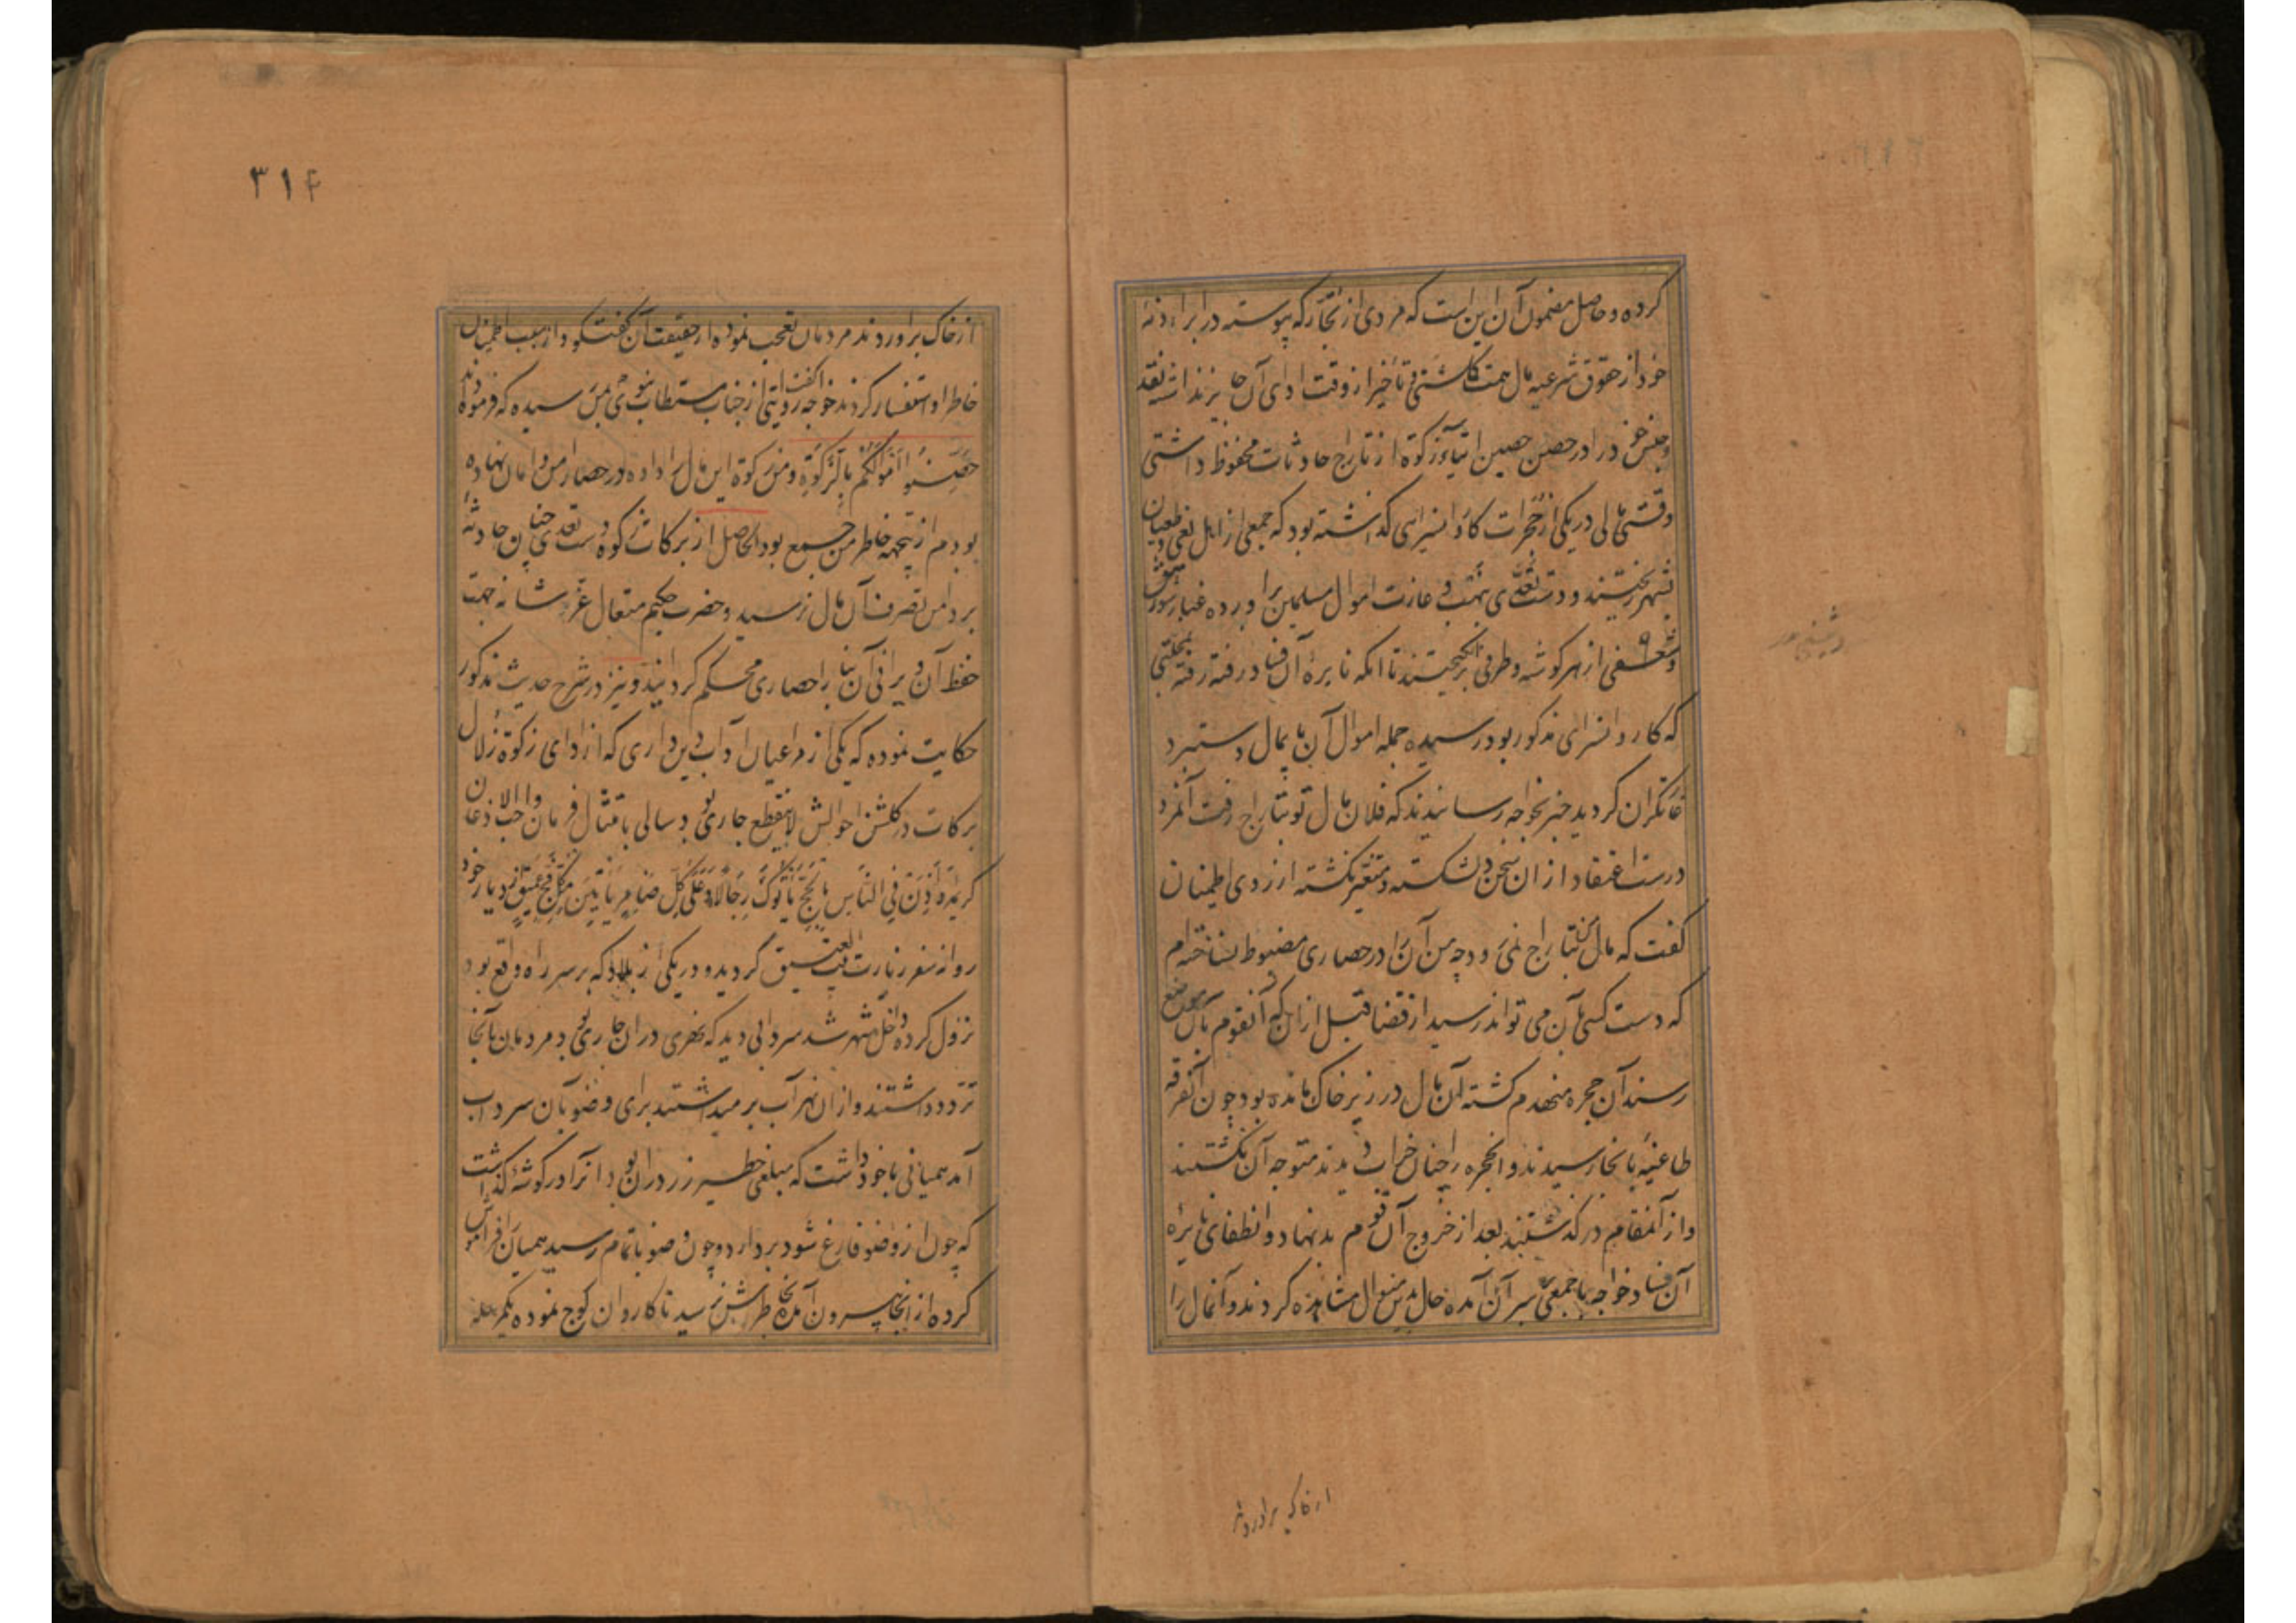 کرده و حاصل مضمون آن این است که مردی از تجار که پیوسته در ابراء ذمه
خود از حقوق شرعیه مال همت کماشتی و تأخیر از وقت ادای آن جایز نداشته نقد
و جنس خود را در حصن حصین ایتاء زکوة از تاراج حادثات محفوظ داشتی
وقتی مالی در یکی از حجرات کاروانسرای گذاشته بود که جمعی از اهل بغی و طغیان
بشهر ریختند و دست تعدی بنهب و غارت اموال مسلمین برآورده غبار شورش
از هر کوشه و طرفی برانکیختند تا انکه نایره آن فساد رفته رفته
که کاروانسرای مذکور بود رسیده جمله اموال آن پایمال دستبرد
غارتکران کردید خبر بخواجه رسانیدند که فلان مال تو بتاراج رفت آنمرد
درست اعتقاد از ان سخن دلشکسته و متغیر نکشته از روی اطمینان
کفت که مال من بتاراج نمیرود چه من آن را در حصاری مضبوط نساخته‌ام
که دست کسی بآن می تواند رسید از قضا قبل از ان که آنقوم بآن موضع
رسند آن حجره منهدم کشته آن مال در زیر خاک مانده بود چون آنفرقه
طاغیه بانجا رسیدند و انحجره را چنان خراب دیدند متوجه آن نکشتند
و از آنمقام در گذشتند بعد از خروج آن قوم بدنهاد و انطفای نایره
آن فساد خواجه با جمعی بسر آن آمده حال بدین منوال مشاهده کردند و آنمال را
از خاک برآوردند
۳۱۴
از خاک برآوردند مردمان تعجب نموده از حقیقت آن گفتگو و از سبب اطمینان
خاطر او استفسار کردند خواجه گفت روایتی از جناب مستطاب نبوی بمن رسیده که فرموده‌اند
حَصِّنُوا اَمْوالَکُم بِالزَّکوةِ و من زکوة این مال را داده در حصار امن و امان نهاده
بودم از ینجهة خاطر من جمع بود الحاصل از برکات زکوة دست تعدی چنان حادثه
بر دامن تصرف آن مال نرسید و حضرت حکیم متعال عز شانه جهت
حفظ آن ویرانی آن بنا را حصاری محکم کردانید و نیز در شرح حدیث مذکور
حکایت نموده که یکی از مراعیان آداب دین داری که از ادای زکوة زلال
برکات در کلشن احوالش لاینقطع جاری بود سالی بامتثال فرمان واجب الاذعان
کریمه وَاَذِّنْ فِی النَّاسِ بِالْحَجِّ یَأْتُوکَ رِجَالًا وَعَلَی کُلِّ ضَامِرٍ یَأْتِینَ مِن کُلِّ فَجٍّ عَمِیقٍ از دیار خود
روانه سفر زیارت بیت العتیق گردید و در یکی از بلاد که بر سر راه واقع بود
نزول کرده داخل شهر شد سردابی دید که نهری در ان جاری بود مردمان بآنجا
تردد داشتند و از ان نهر آب بر میداشتند برای وضو بآن سرداب
آمد همیانی با خود داشت که مبلغی خطیر زر در ان بود انرا در کوشه گذاشت
که چون از وضو فارغ شود بردارد و چون وضو باتمام رسید همیان فراموش
کرده از انجا بیرون آمد و بخاطرش نرسید تا کاروان کوچ نموده یکمرحله